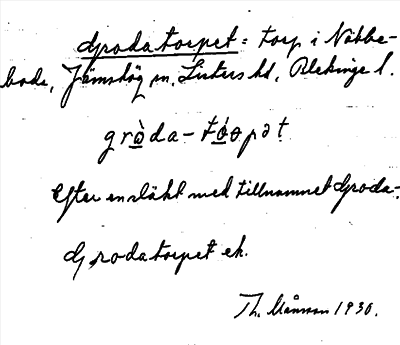 Grodatorpet = torp i Nöbbe-
bode, Jämshög sn, Listers hd, Blekinge l.
gròda-tóɵpət.
Efter en släkt med tillnamnet Groda-.
Grodatorpet ek.
Th. Månsson 1930.